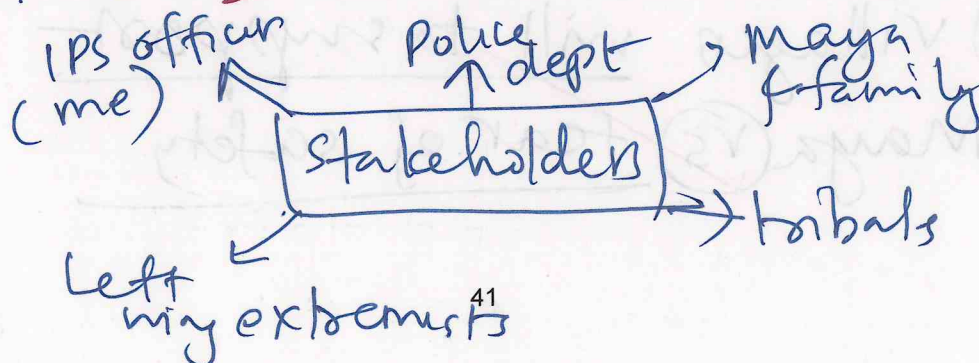 IPS officer
(me)
Police
dept
Maya
& family
Stakeholders
tribals
Left
wing extremists
41